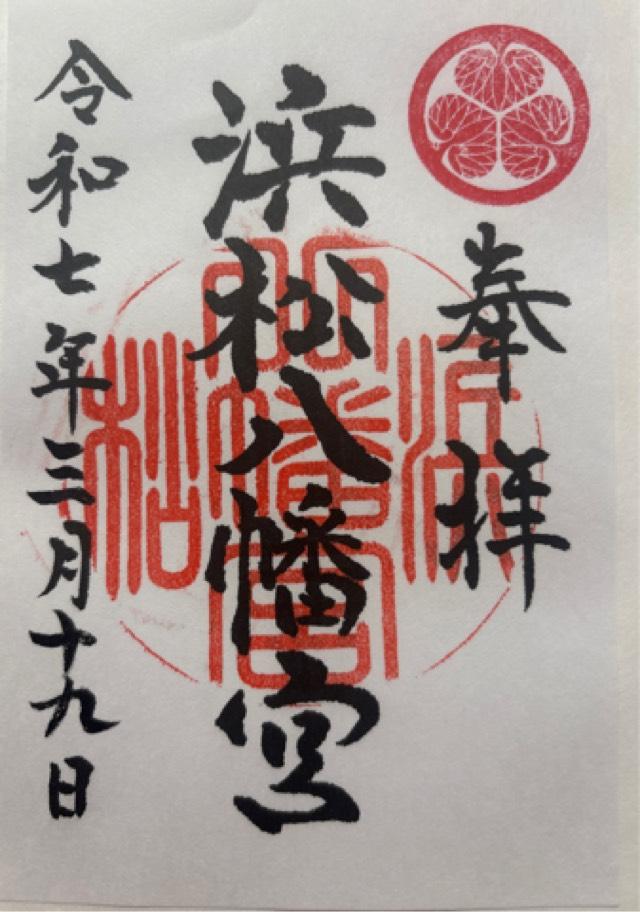 奉拝
浜松八幡宮
令和七年三月十九日
浜松八幡宮